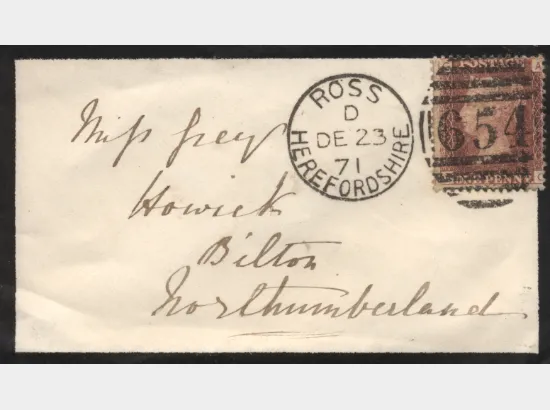 Miss Grey
Howick
Bilton
Northumberland
ROSS
D
DE 23
71
HEREFORDSHIRE
POSTAGE
A
654
ONE PENNY